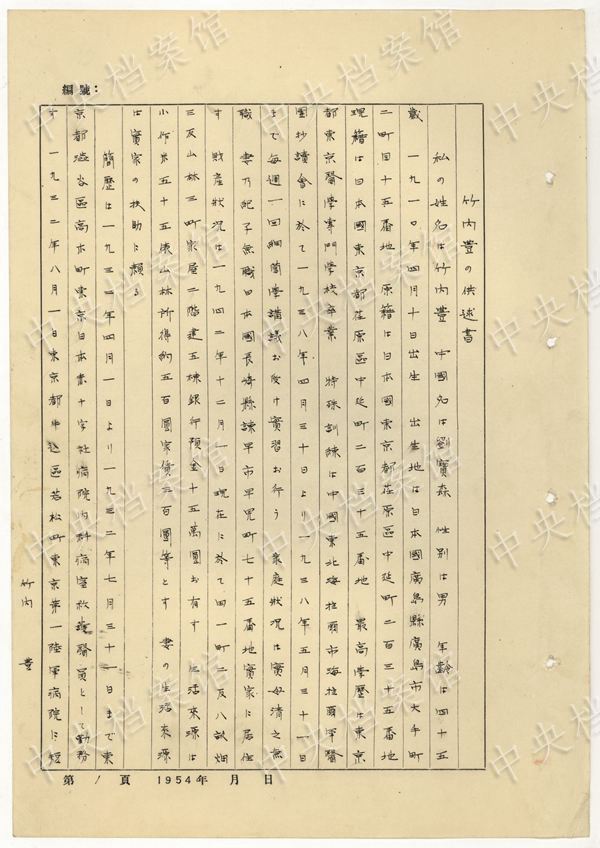 編號：
竹內豊の供述書
私の姓名は竹內豊 中國名は劉寶森 性別は男 年齢は四十五
歳 一九一〇年四月十日出生 出生地は日本國廣島縣廣島市大手町
二町目十五番地 原籍は日本國東京都荏原區中延町二百三十五番地
現籍は日本國東京都荏原區中延町二百三十五番地 最高學歴は東京
都東京醫學專門學校卒業 特殊訓練は中國東北海拉爾市海拉爾軍醫
團抄讀會に於て一九三八年四月三十日より一九三八年五月三十一日
まで毎週一回細菌學講議お受け實習お行う 家庭狀況は實母清之無
職 妻乃紀子無職日本國長崎縣諫早市早見町七十五番地實家に居住
す 財産狀況は一九四二年十二月一日現在に於て田一町二反八畝畑
三反山林三町家屋二階建五棟銀行預金十五萬圓お有す 生活來源は
小作米五十五俵山林所得約五百圓家賃六百圓等とす 妻の生活來源
は實家の扶助に頼る
簡歴は一九三二年四月一日より一九三二年七月三十一日まで東
京都澁谷區高木町東京日本赤十字社病院內科病室救護醫員として勤務
す 一九三二年八月一日東京都牛込區若松町東京第一陸軍病院に短
竹內 豊
第 1 頁 1954年 月 日
中央档案馆